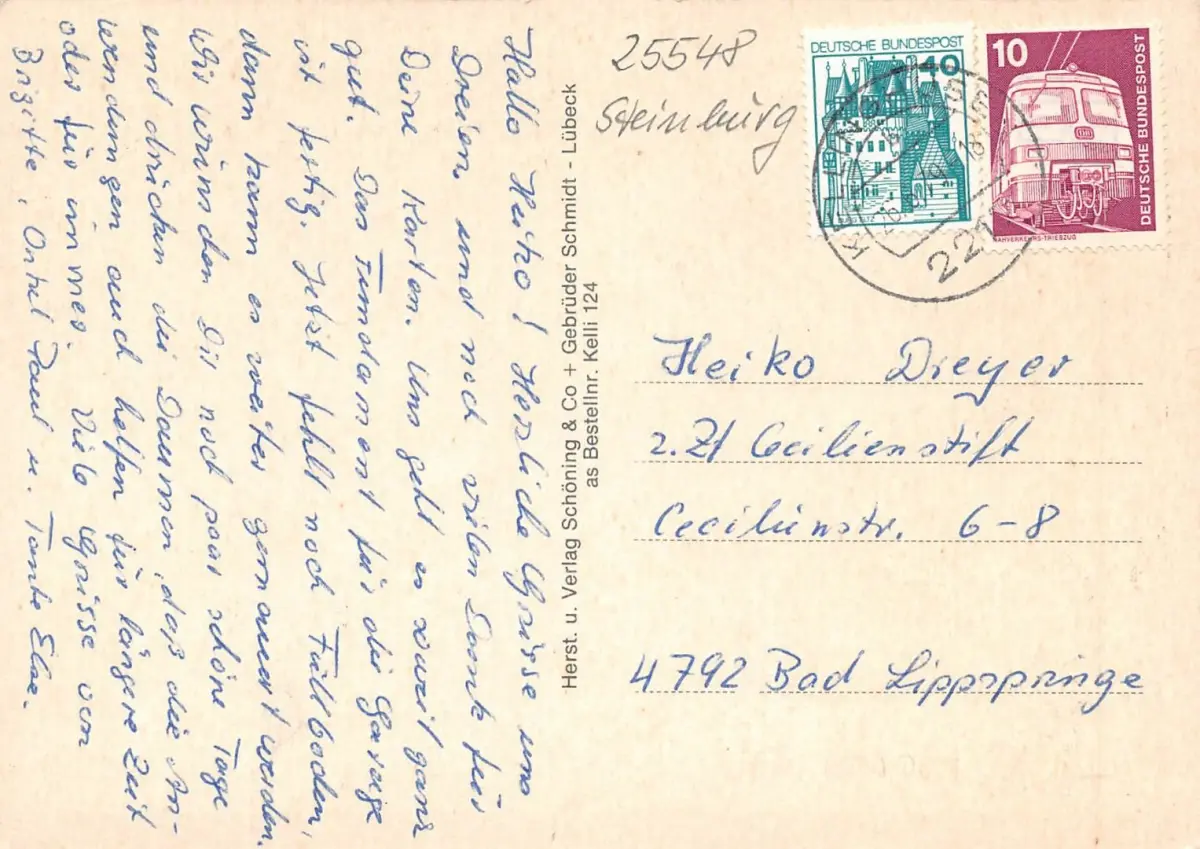 Hallo Heiko! Herzliche Grüsse uns
Dreien, und noch vielen Dank für
Deine Karten. Uns geht es soweit ganz
gut. Das Fundament für die Garage
ist fertig. Jetzt fehlt noch Füllboden,
dann kann es weiter gemauert werden.
Wir wünschen Dir noch paar schöne Tage
und drücken die Daumen, daß die An-
wendungen auch helfen für längere Zeit
oder für immer. Viele Grüsse von
Brigitte, Onkel Paul u. Tante Else.
Herst. u. Verlag Schöning & Co + Gebrüder Schmidt - Lübeck
as Bestellnr. Kelli 124
25548
Steinburg
DEUTSCHE BUNDESPOST
40
10
DEUTSCHE BUNDESPOST
NAHVERKEHRS-TRIEBZUG
221
Heiko Dreyer
z. Zt Cecilienstift
Cecilienstr. 6-8
4792 Bad Lippspringe